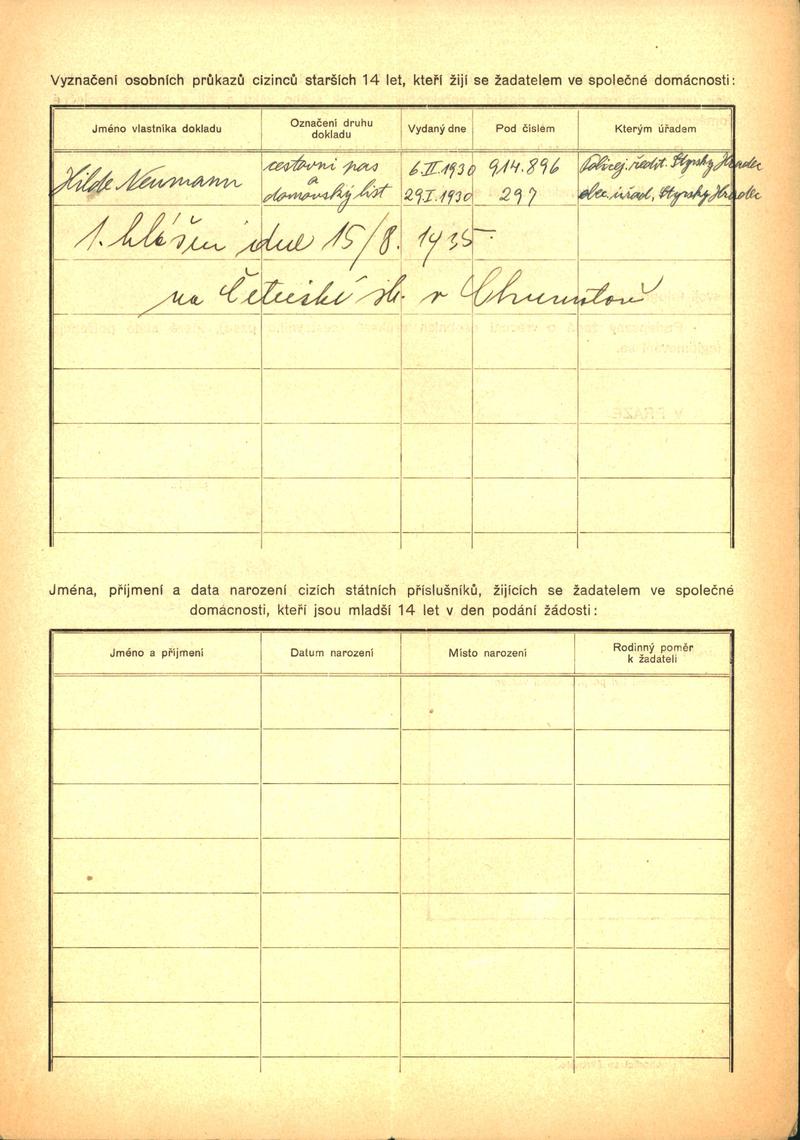 Vyznačení osobních průkazů cizinců starších 14 let, kteří žijí se žadatelem ve společné domácnosti:
Jméno vlastníka dokladu
Označení druhu dokladu
Vydaný dne
Pod číslem
Kterým úřadem
Hilde Neumann
cestovní pas
6.II.1930
914.896
Policej. ředit. Styrsky Hradec
a
domovský list
29.I.1930
297
obec. úřad, Styrsky Hradec
1. hlášen dne 15/8. 1935.
na Četnické st. v Chomutově
Jména, příjmení a data narození cizích státních příslušníků, žijících se žadatelem ve společné
domácnosti, kteří jsou mladší 14 let v den podání žádosti:
Jméno a příjmení
Datum narození
Místo narození
Rodinný poměr k žadateli